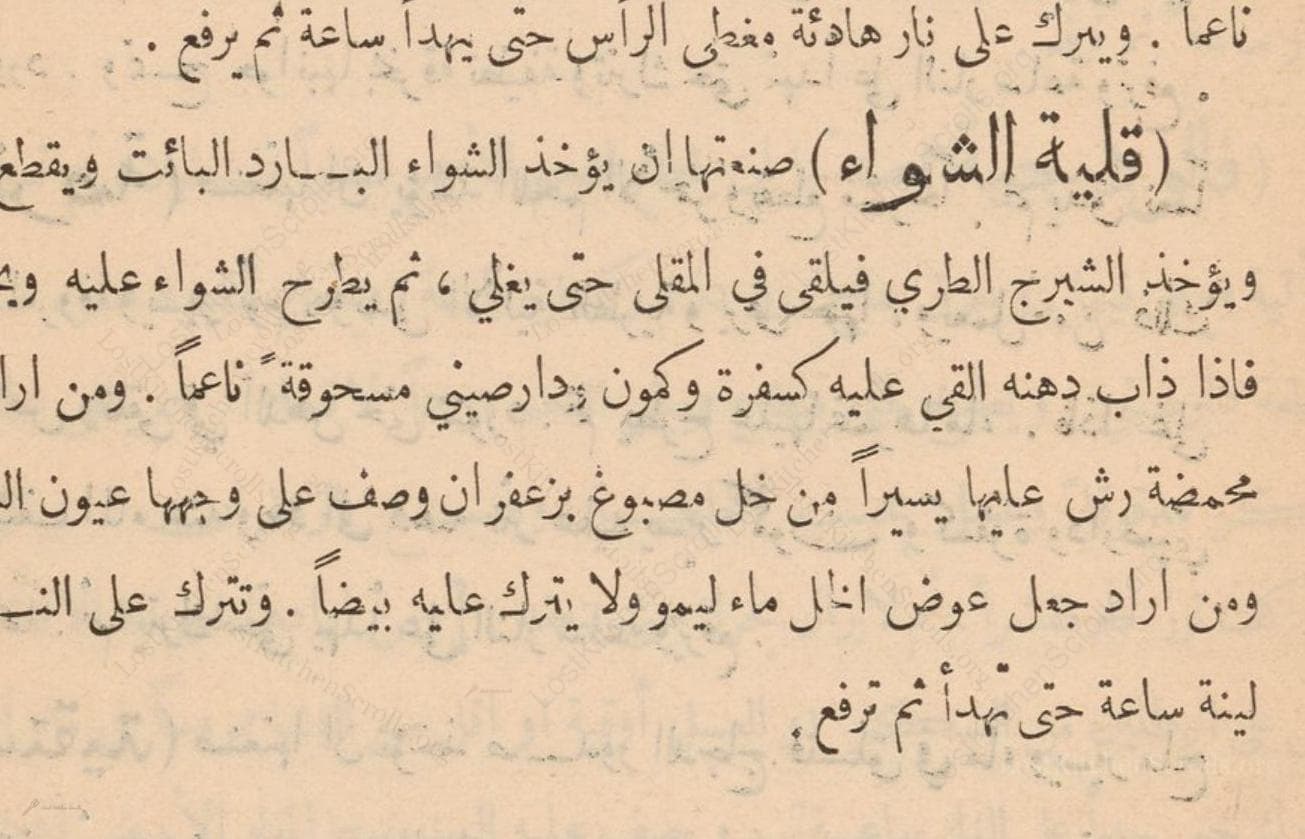 ناعما . ويترك على نار هادئة مغطى الرأس حتى يهدأ ساعة ثم يرفع .
(قلية الشواء) صنعتها ان يؤخذ الشواء البـــارد البائت ويقطع
ويؤخذ الشيرج الطري فيلقى في المقلى حتى يغلي ، ثم يطرح الشواء عليه
فاذا ذاب دهنه القي عليه كسفرة وكمون ودارصيني مسحوقة ً ناعماً . ومن
محمضة رش عليها يسيراً من خل مصبوغ بزعفران وصف على وجهها عيون
ومن اراد جعل عوض الخل ماء ليمو ولا يترك عليه بيضاً . وتترك على
لينة ساعة حتى تهدأ ثم ترفع .